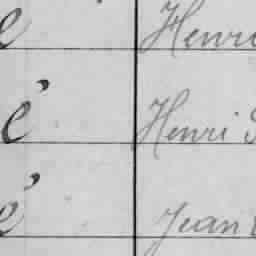 e Henri
é Henri
é Jean